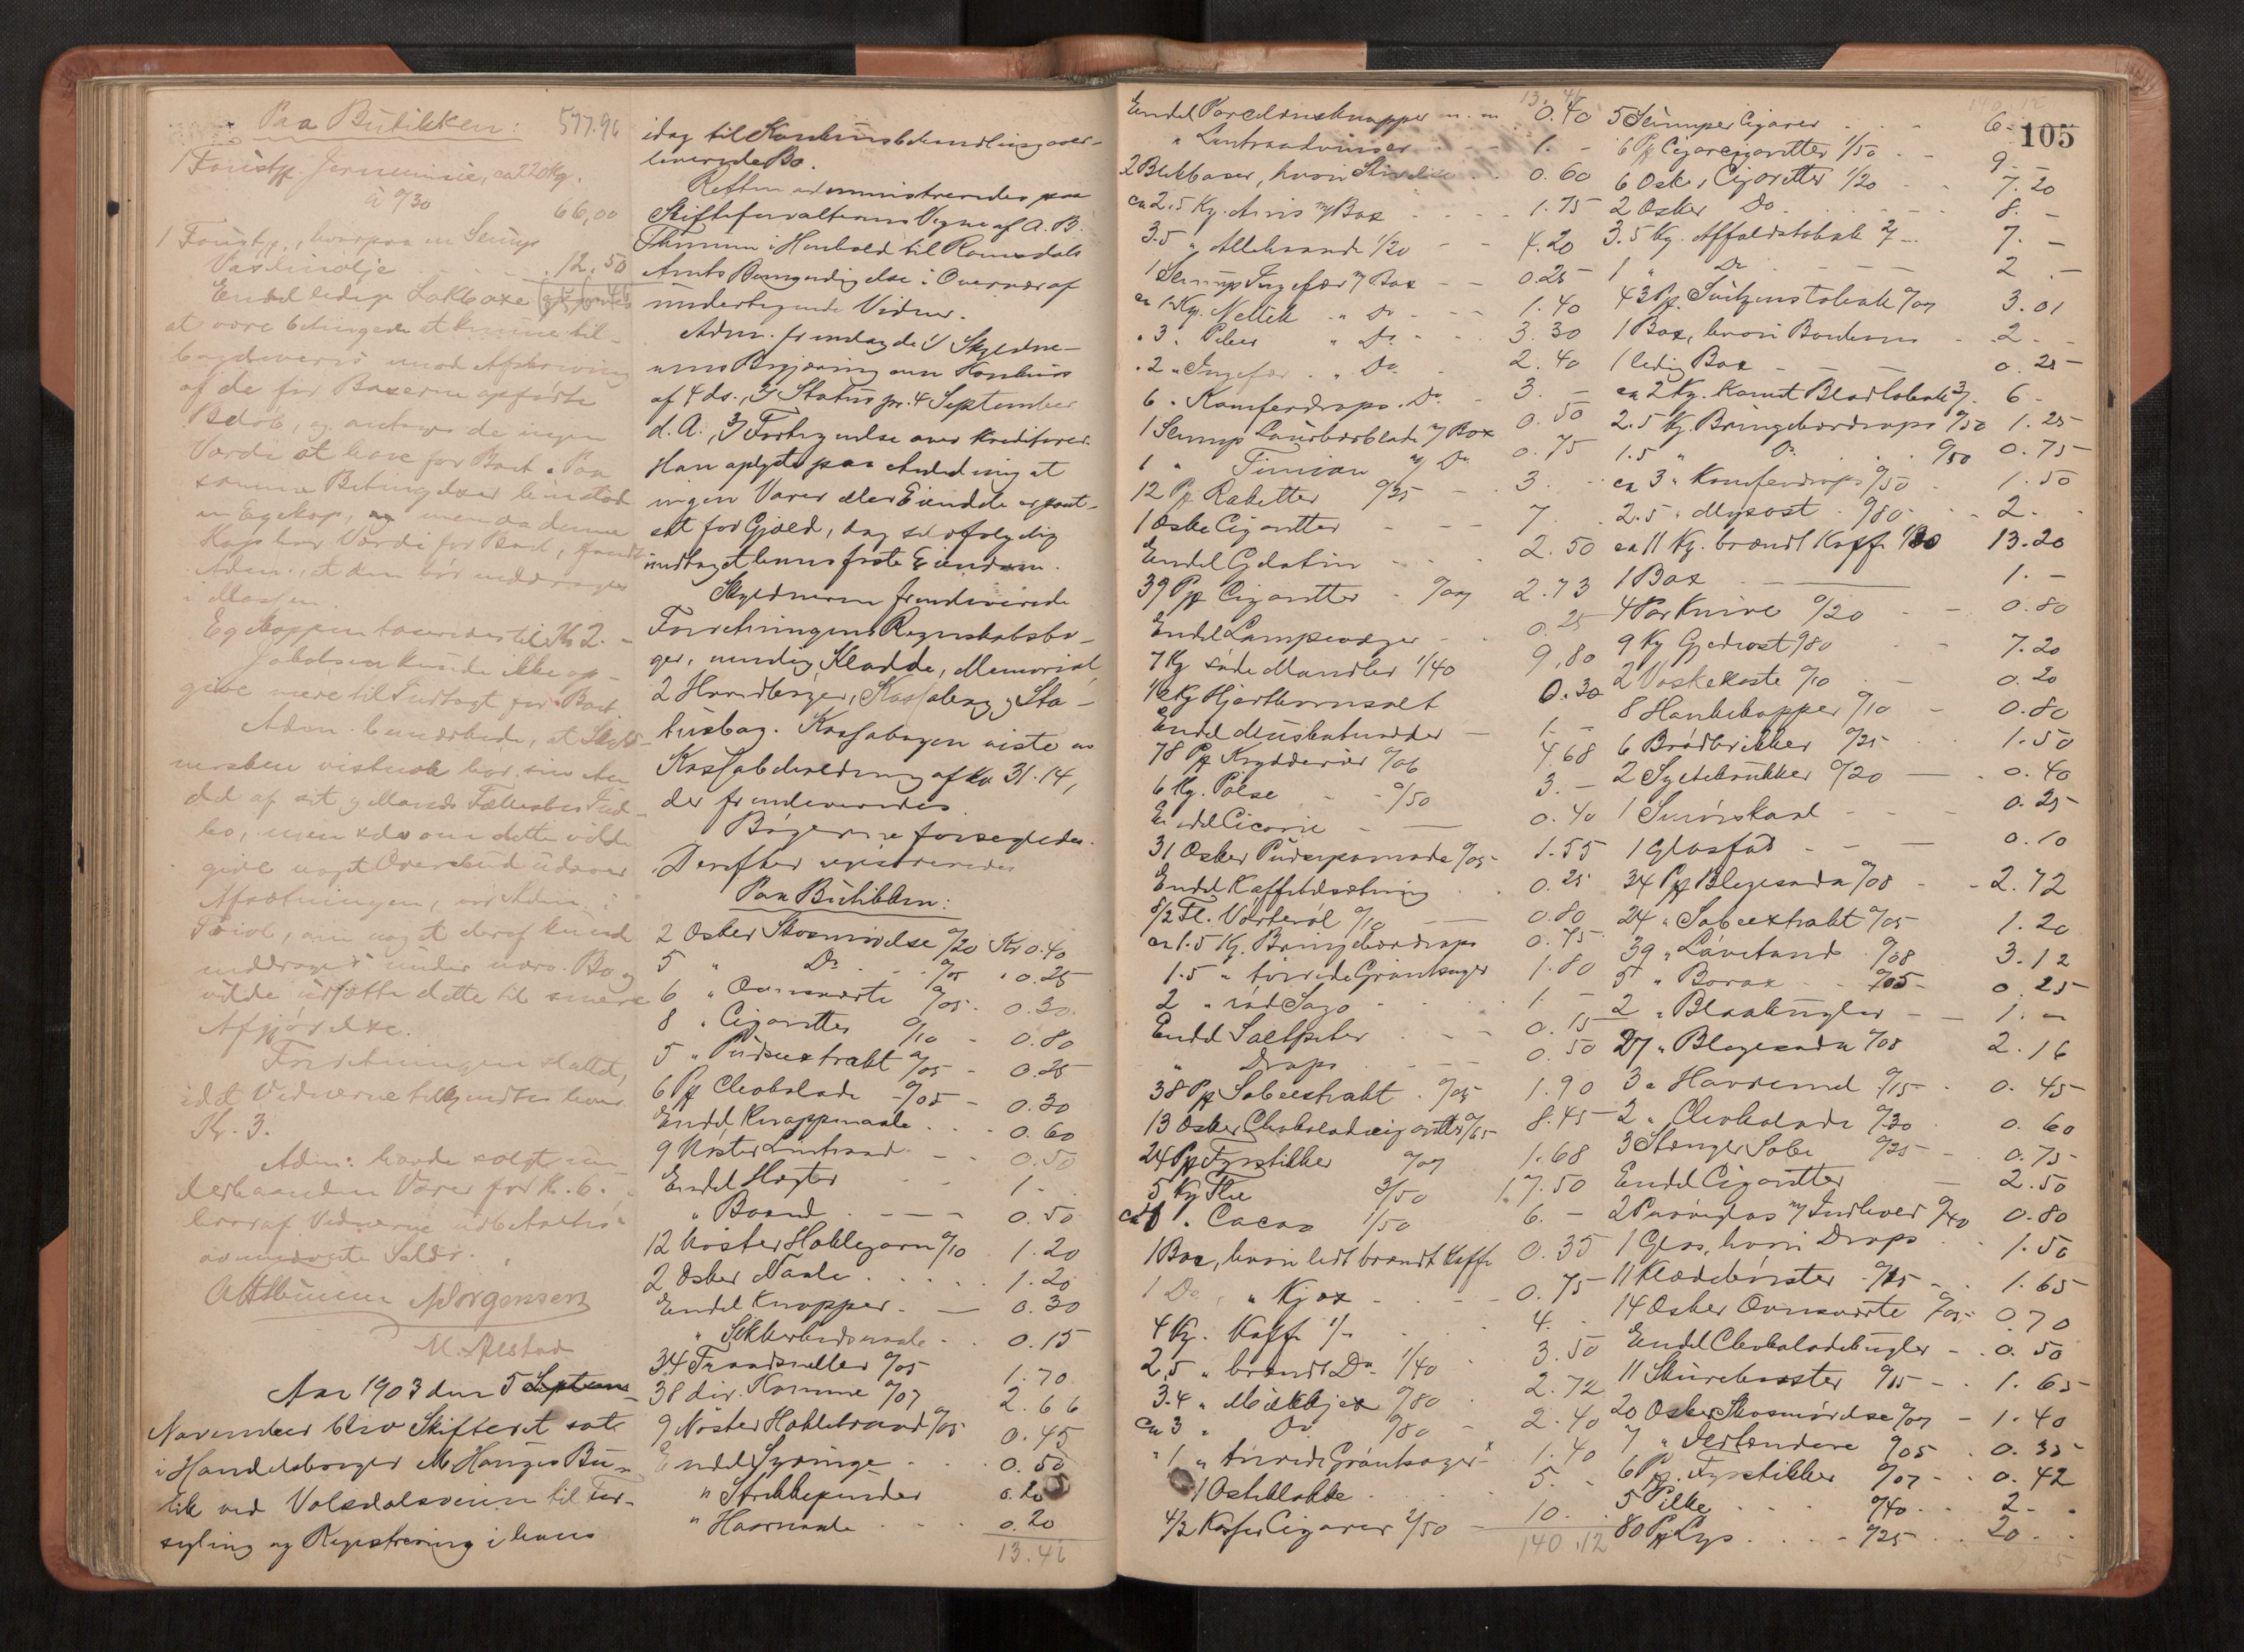 Paa Butikken: 577.96
1 Foustg. Jernmönie, ca 220 Kg.
à 0/30 66,00
1 Foustg., hvorpaa en Slump
Vaselinolje 12.50
Endel ledige Lakboxe
at være betingede at kunne til-
bageleveres mod Afskrivning
af de for Boxerne opførte
Beløb, og antages de ingen
Værdi at have for Boet. Paa
samme Betingelser henstod
en Egekop, og men da denne
Kop har Værdi for Boet, fandt
Adm., at den bör inddrages
i Massen.
Egekoppen taxeredes til Kr 2. -
Jakobsen kunde ikke op-
give mere til Indtægt for Boet.
Adm. bemærkede, at Skyld-
nersken vistnok har sin An-
del af sit og Mands Fællesbo i
bo, men selv om dette vilde
give noget Overskud udover
Afsætningen, var Adm. i
Tvivl, om noget deraf kunde
inddrages under nærv. Bo og
vilde udsætte dette til senere
Afgjörelse.
Forretningen sluttet,
idet Vidnerne tilkjendtes hver
Kr. 3.
Adm: havde solgt un-
derhaanden Varer for Kr. 6.
hvoraf Vidnerne udbetaltes
ovennævnte Salær.
A B Thumme N Jørgensen
M. Alstad
Aar 1903 den 5 Septem
November blev Skifteret sat
i Handelsborger M. Hauges Bu-
tik ved Volsdalsveien til For-
segling og Registrering i hans
idag til Konkursbehandling over-
leverede Bo.
Retten administreredes paa
Skifteforvalterens Vegne af A. B.
Thumme i Henhold til Romsdals
Amts Bemyndigelse i Overvær af
undertegnede Vidner.
Adm. fremlagde 1) Skyldne-
rens Begjæring om Konkurs
af 4 ds., 2) Status pr. 4 September
d. A., 3) Fortegnelse over Kreditorer.
Han oplyste paa Anledning at
ingen Varer eller Eiendele er pant-
sat for Gjæld, dog selvfølgelig
undtaget hans faste Eiendom.
Skyldneren fremleverede
Forretningens Regnskabsbö-
ger, nemlig Kladde, Memorial,
2 Hovedböger, Kassabog og Sta-
tusbog. Kassabogen viste en
Kassabeholdning af Kr 31.14,
der fremleveredes.
Bögerne forsegledes.
Derefter registreredes
Paa Butikken:
2 Æsker Skosmörelse 0/20 Kr 0.40
5 " Do 0/05 " 0.25
6 " Ovnsværte 0/05 - 0.30
8 " Cigaretter 0/10 - 0.80
5 " Pudseextrakt 0/05 - 0.25
6 Pk Chokolade 0/05 - 0.30
Endel Knappenaale 0.60
9 Nöster Lintraad 0.50
Endel Hægter 1 -
" Baand 0.50
12 Nöster Heklegarn 0/10 1.20
2 Æsker Naale 1.20
Endel Knapper 0.30
" Sikkerhedsnaale 0.15
34 Traadsneller 0/05 1.70
38 div. Kamme 0/07 2.66
9 Nöster Hekletraad 0/05 0.45
Endel Syringe 0.50
" Strikkepinder 0.20
" Haarnaale 0.20
13.46
13.46
Endel Porcelænsknapper m. m. 0.40
" Lintraadsvinser 1. -
2 Blikboxer, hvori Stivelse 0.60
ca 2.5 Kg. Anis m/ Box 1.75
3.5 " Allehaande 1/20 4.20
1 Slump Ingefær m/ Box 0.25
ca 1/2 Kg. Nellik " Do 1.40
" 3 " Peber " Do 3.30
" 2 " Ingefær " Do 2.40
6 " Kamferdrops Do 3. -
1 Slump Laurbærblade m/ Box 0.50
1 " Timian m/ Do 0.75
12 Pk Raketter 0/25 3. -
1 Æske Cigaretter 7
Endel Gelatin 2.50
39 Pk Cigaretter 0/07 2.73
Endel Lampevæger 0.25
7 Kg söde Mandler 1/40 9,80
1/2 Kg Hjorthornsalt 0.30
Endel Muskatnödder 1. -
78 Pk Krydderier 0/06 4.68
6 Kg. Pölse 0/50 3. -
Endel Cicorie 0.40
31 Æsker Pudsepomade 0/05 1.55
Endel Kaffetilsætning 0.25
8/2 Fl. Vörteröl 0/10 0.80
ca 1.5 Kg. Bringebærdrops 0.75
1.5 " törrede Grönsager 1.80
2 " röd Sago 1. -
Endel Saltpeter 0.15
" Drops 0.50
38 Pk Sæbeextrakt 0/05 1.90
13 Æsker Chokoladecigaretter 0/65 8.45
24 Pk Fyrstikker 0/07 1.68
5 Kg The 3/50 17.50
ca 4 " Cacao 1/50 6. -
1 Box, hvori lidt brændt Kaffe 0.35
1 Do, " Kjæx 0.75
4 Kg. Kaffe 1/- 4. -
2,5 " brændt Do 1/40 3.50
3.4 " Mælkkjæx 0/80 2.72
ca 3 " Do 0/80 2.40
" 1 " törrede Grönsager 1.40
1 Osteklokke 5. -
4/2 Kasser Cigarer 2/50 10. -
140.12
140.12
105
5 Slumper Cigarer 6. -
6 Pk Cigarcigaretter 1/50 9. -
6 Æsker Cigaretter 1/20 7.20
2 Æsker Do 8. -
3.5 Kg. Affaldstobak 2/- 7. -
1 " Do 2. -
43 Pk Svitzenstobak 0/07 3.01
1 Box, hvori Bonbons 2. -
1 ledig Box 0.25
ca 2 Kg. Karvet Bladtobak 3/- 6 -
2.5 Kg. Bringebærdrops 0/50 1.25
1.5 " Do 0/50 0.75
ca 3 " Kamferdrops 0/50 1.50
2.5 " Mysost 0/80 2. -
ca 11 Kg. brændt Kaffe 1/20 13.20
1 Box 1. -
4 Par Knive 0/20 0.80
9 Kg Gjedeost 0/80 7.20
2 Vaskekoste 0/10 0.20
8 Hankekopper 0/10 0.80
6 Brödbrikker 0/25 1.50
2 Syltekrukker 0/20 0.40
1 Smörskaal 0.25
1 Glasfad 0.10
34 Pk Blegesoda 0/08 2.72
24 " Sæbeextrakt 0/05 1.20
39 " Lövetand 0/08 3.12
5 " Borax 0/05 0.25
2 " Blaakugler 1. -
27 " Blegesoda 0/08 2.16
3 " Havremel 0/15 0.45
2 " Chokolade 0/30 0.60
3 Stænger Sæbe 0/25 0.75
Endel Cigaretter 2.50
2 Prövglas m/ Indhold 0/40 0.80
1 Glas, hvori Drops 1.50
11 Klædebörster 0/15 1.65
14 Æsker Ovnsværte 0/05 0.70
Endel Chokoladekugler 0.50
11 Skurebörster 0/15 1.65
20 Æsker Skosmörelse 0/07 1.40
7 " Ildtændere 0/05 0.35
6 Pk. Fyrstikker 0/07 0.42
5 Pilke 0/40 2. -
80 Pk Lys 0/25 20. -